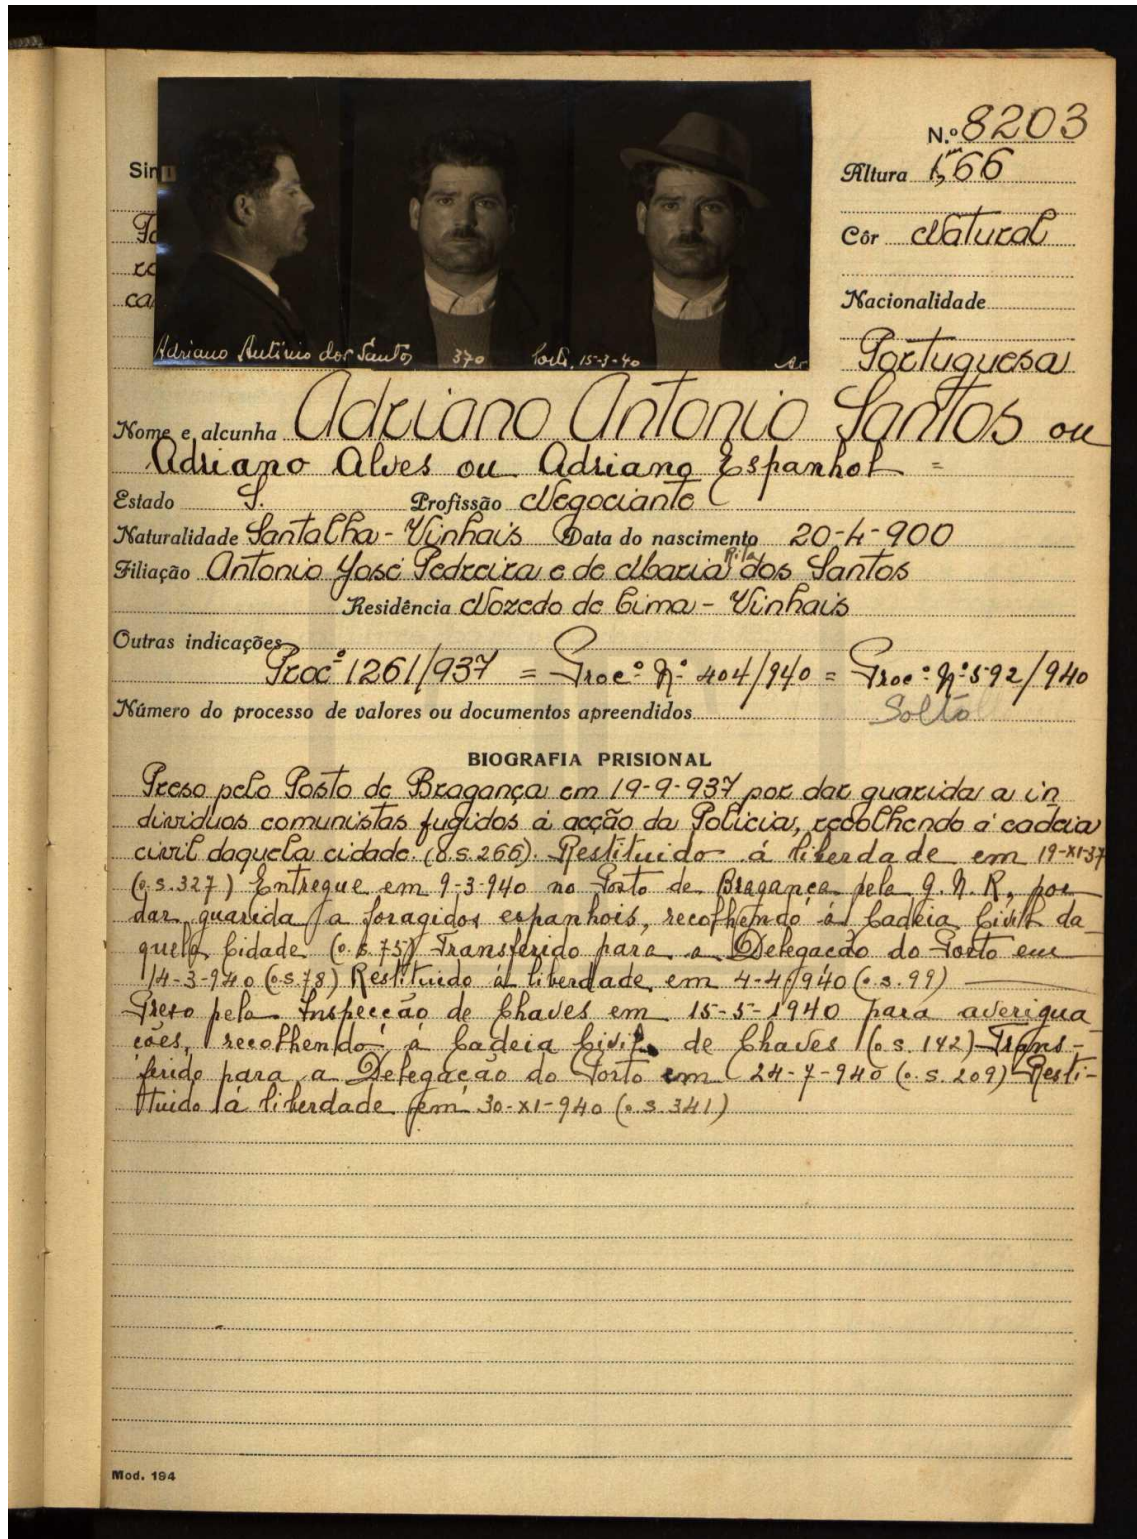 N.º 8203
Sin
Altura 1,66
Côr Natural
ca
Nacionalidade
Portuguesa
Adriano António dos Santos 370 Porto, 15-3-40
Nome e alcunha Adriano Antonio Santos ou
Adriano Alves ou Adriano Espanhol =
Estado S. Profissão Negociante
Naturalidade Santalha - Vinhais Data do nascimento 20-4-900
Filiação Antonio José Pedreira e de Maria Rita dos Santos
Residência Nozedo de Cima - Vinhais
Outras indicações
Procº 1261/937 = Proc.º N.º 404/940 = Proc.º N.º 592/940
Número do processo de valores ou documentos apreendidos Solto
BIOGRAFIA PRISIONAL
Preso pelo Posto de Bragança em 19-9-937 por dar guarida a in
dividuos comunistas fugidos á acção da Policia, recolhendo á cadeia
civil daquela cidade. (o.s.266). Restituido á liberdade em 19-XI-37
(o.s.327) Entregue em 9-3-940 no Posto de Bragança pela G.N.R, por
dar guarida a foragidos espanhois, recolhendo á Cadeia Civil da
quela Cidade (o.s.75) Transferido para a Delegacão do Porto em
14-3-940 (o.s.78) Restituido á liberdade em 4-4-940 (o.s.99)
Preso pela Inspecção de Chaves em 15-5-1940 para averigua
ções, recolhendo á Cadeia Civil de Chaves (o.s.142) Trans-
ferido para a Delegação do Porto em 24-7-940 (o.s.209) Resti-
tuido á liberdade em 30-XI-940 (o.s.341)
Mod. 194